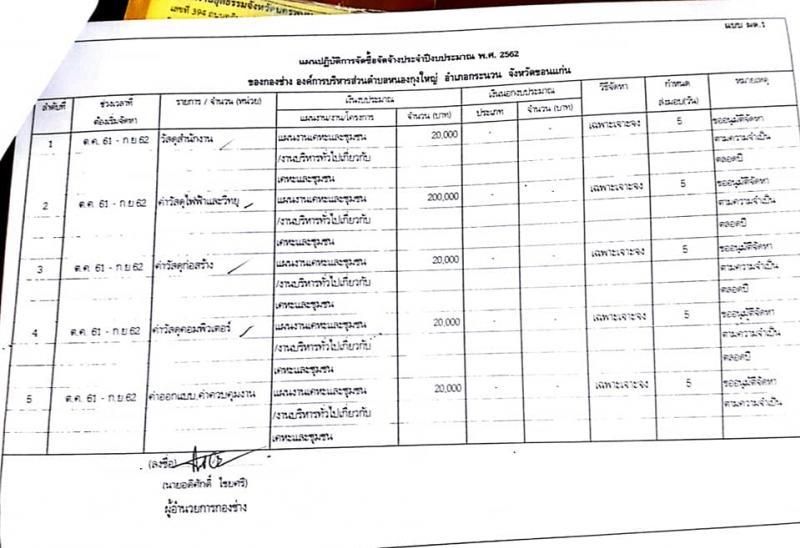 เลขที่ 394
แบบ ผด.1
แผนปฏิบัติการจัดซื้อจัดจ้างประจำปีงบประมาณ พ.ศ. 2562
ของกองช่าง องค์การบริหารส่วนตำบลหนองกุงใหญ่ อำเภอกระนวน จังหวัดขอนแก่น
ลำดับที่ ช่วงเวลาที่ต้องเริ่มจัดหา รายการ / จำนวน (หน่วย) เงินงบประมาณ เงินนอกงบประมาณ วิธีจัดหา กำหนดส่งมอบ(วัน) หมายเหตุ
แผนงาน/งาน/โครงการ จำนวน (บาท) ประเภท จำนวน (บาท)
1 ต.ค. 61 - ก.ย 62 วัสดุสำนักงาน แผนงานเคหะและชุมชน 20,000 - - เฉพาะเจาะจง 5 ขออนุมัติจัดหา
/งานบริหารทั่วไปเกี่ยวกับ ตามความจำเป็น
เคหะและชุมชน ตลอดปี
2 ต.ค. 61 - ก.ย 62 ค่าวัสดุไฟฟ้าและวิทยุ แผนงานเคหะและชุมชน 200,000 - - เฉพาะเจาะจง 5 ขออนุมัติจัดหา
/งานบริหารทั่วไปเกี่ยวกับ ตามความจำเป็น
เคหะและชุมชน ตลอดปี
3 ต.ค. 61 - ก.ย 62 ค่าวัสดุก่อสร้าง แผนงานเคหะและชุมชน 20,000 - - เฉพาะเจาะจง 5 ขออนุมัติจัดหา
/งานบริหารทั่วไปเกี่ยวกับ ตามความจำเป็น
เคหะและชุมชน ตลอดปี
4 ต.ค. 61 - ก.ย 62 ค่าวัสดุคอมพิวเตอร์ แผนงานเคหะและชุมชน 20,000 - - เฉพาะเจาะจง 5 ขออนุมัติจัดหา
/งานบริหารทั่วไปเกี่ยวกับ ตามความจำเป็น
เคหะและชุมชน ตลอดปี
5 ต.ค. 61 - ก.ย 62 ค่าออกแบบ,ค่าควบคุมงาน แผนงานเคหะและชุมชน 20,000 - - เฉพาะเจาะจง 5 ขออนุมัติจัดหา
/งานบริหารทั่วไปเกี่ยวกับ ตามความจำเป็น
เคหะและชุมชน
(ลงชื่อ)
(นายอดิศักดิ์ ไชยศรี)
ผู้อำนวยการกองช่าง